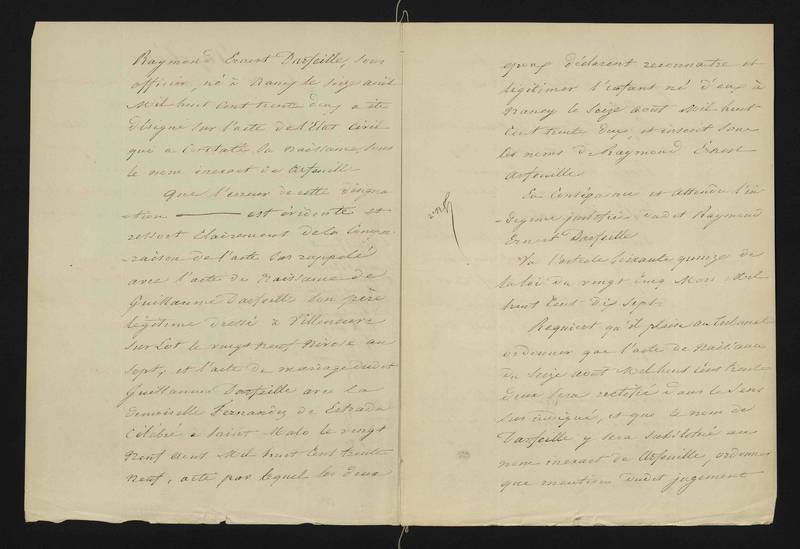 Raymond Ernest Darfeille, sous
officier, né à Nancy le seize août
Mil huit cent trente deux a été
désigné sur l'acte de l'Etat Civil
qui a constaté sa Naissance, sous
le nom inexact de Arfeuille
Que l'erreur de cette désigna
-tion ——— est évidente et
ressort clairement de la Compa
raison de l'acte sus rappelé
avec l'acte de Naissance de
Guillaume Darfeille son père
légitime dressé à Villeneuve
sur Lot le vingt neuf Nivose an
sept, et l'acte de mariage dudit
Guillaume Darfeille avec la
demoiselle Fernandez de Estrada
Célébré à Saint Malo le vingt
Neuf août Mil huit Cent trente
Neuf, acte par lequel les deux
époux déclarent reconnaitre et
légitimer l'enfant né d'eux à
Nancy le Seize août Mil huit
Cent trente deux et inscrit sous
les noms de Raymond Ernest
Arfeuille
En Conséquence et attendu l'in
-digence justifiée dudit Raymond
Ernest Darfeille
Vu l'article soixante quinze de
la loi du vingt cinq Mars Mil
huit Cent dix sept
Requiert qu'il plaise au tribunal
ordonner que l'acte de Naissance
du Seize août Mil huit Cent trente
deux sera rectifié dans le sens
sus indiqué, et que le nom de
Darfeille y sera substitué au
nom inexact de Arfeuille, ordonner
que mention dudit jugement